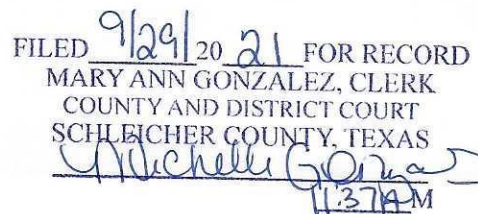 FILED 9/29/20 21 FOR RECORD
MARY ANN GONZALEZ, CLERK
COUNTY AND DISTRICT COURT
SCHLEICHER COUNTY, TEXAS
Michelle
11:37A M